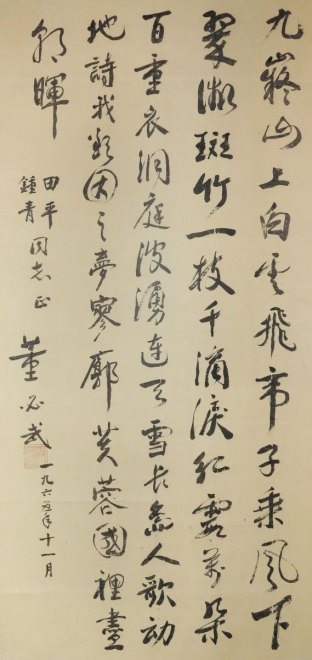 九嶷山上白云飛帝子乘風下
翠微斑竹一枝千滴淚紅霞萬朵
百重衣洞庭波湧連天雪長島人歌動
地詩我欲因之夢寥廓芙蓉國裡盡
朝暉
田平
鍾青同志正
董必武
一九六五年十一月